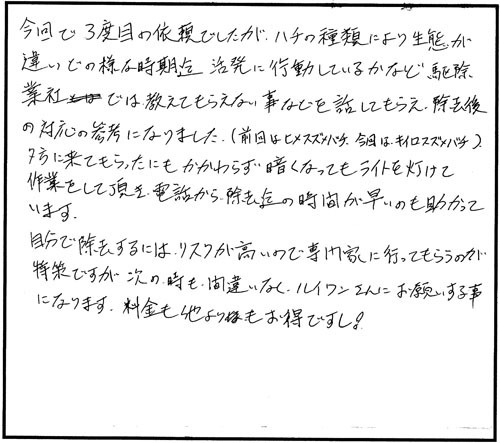 今回で3度目の依頼でしたが、ハチの種類により生態が
違いどの様な時期迄 活発に行動しているかなど駆除
業社では教えてもらえない事などを話してもらえ、除去後
の対応の参考になりました。(前回はヒメスズメバチ、今回はキイロスズメバチ)
夕方に来てもらったにもかかわらず暗くなってもライトを灯けて
作業をして頂き、電話から除去迄の時間が早いのも助かって
います。
自分で除去するには、リスクが高いので専門家に行ってもらうのが
得策ですが 次の時も、間違いなく、ルイワンさんにお願いする事
になります。料金も他よりもお得ですし!